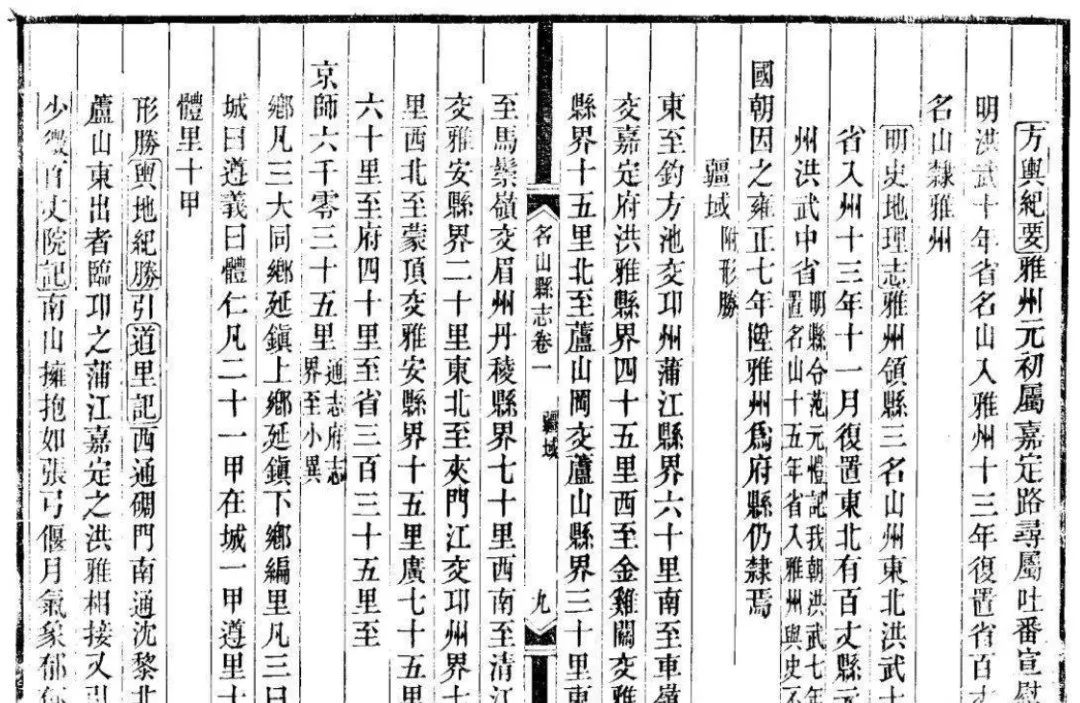 方輿紀要雅州元初屬嘉定路尋屬吐番宣慰
明洪武十年省名山入雅州十三年復置省百
名山隸雅州
明史地理志雅州領縣三名山州東北洪武十
省入州十三年十一月復置東北有百丈縣元
州洪武中省明縣令范元禮記我朝洪武七年置名山十五年省入雅州與史不
國朝因之雍正七年陞雅州為府縣仍隸焉
疆域附形勝
東至釣方池交邛州蒲江縣界六十里南至車嶺
交嘉定府洪雅縣界四十五里西至金雞關交雅
縣界十五里北至蘆山岡交蘆山縣界三十里東
名山縣志卷一 疆域 九
至馬鬃嶺交眉州丹稜縣界七十里西南至清江
交雅安縣界二十里東北至夾門江交邛州界七
里西北至蒙頂交雅安縣界十五里廣七十五里
六十里至府四十里至省三百三十五里至
京師六千零三十五里通志府志界至小異
鄉凡三大同鄉延鎮上鄉延鎮下鄉編里凡三曰
城曰遵義曰體仁凡二十一甲在城一甲遵里十
體里十甲
形勝輿地紀勝引道里記西通碉門南通沈黎北
蘆山東出者臨邛之蒲江嘉定之洪雅相接又引
少微百丈院記南山擁抱如張弓偃月氣象郁